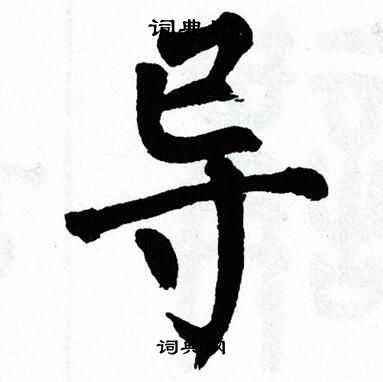 词典网
导
词典网